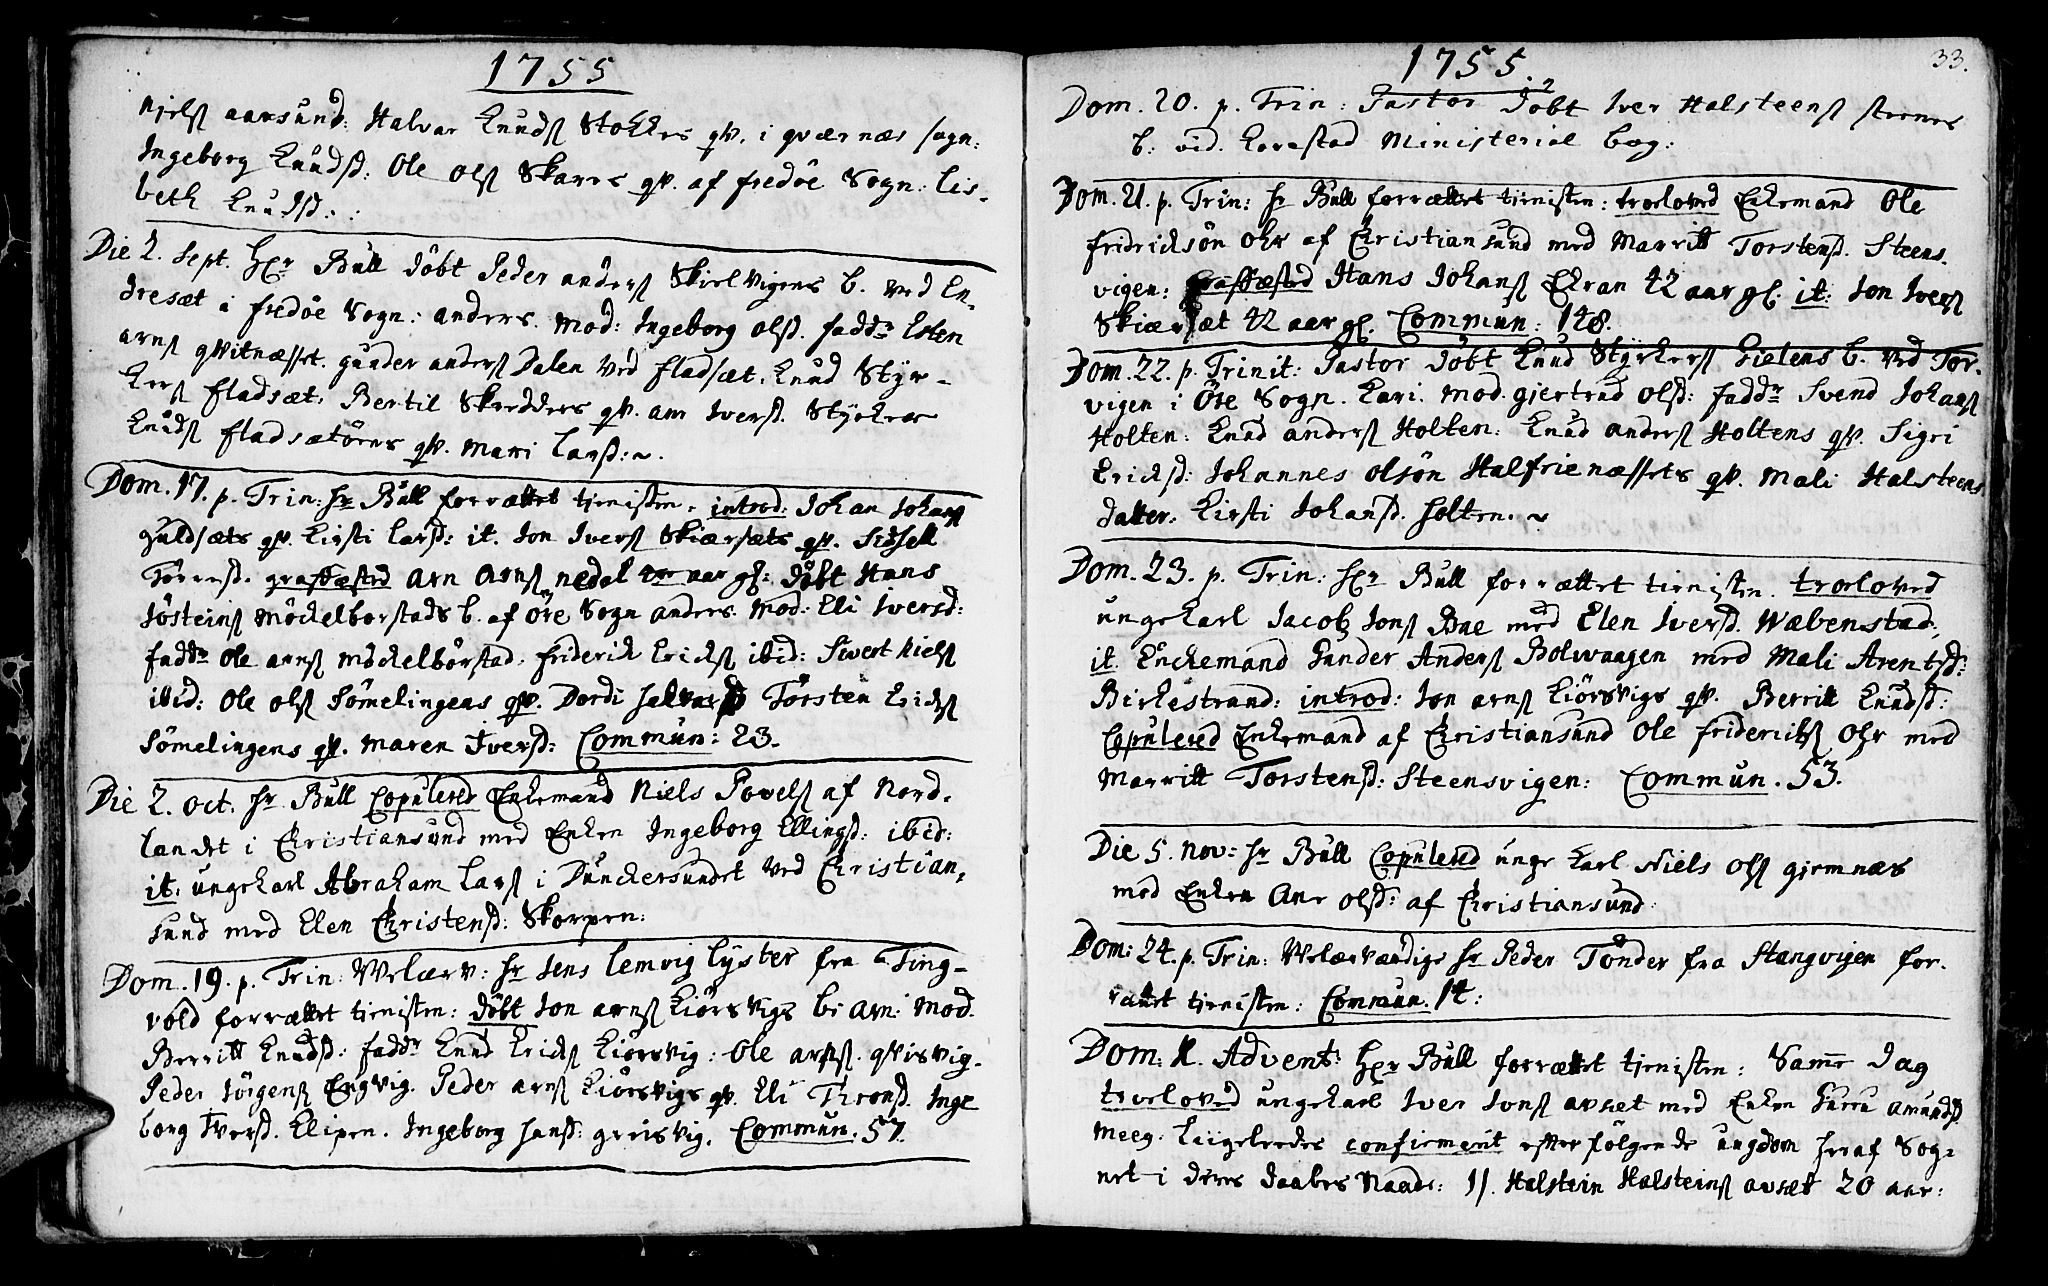 1755
Njels aarsund: Halvar Knuds Stokkes qv. i qværnæs sogn:
Ingeborg Knudsd: Ole Ols Skares qv. af fredöe Sogn: Lis-
beth Knudsd:
Die 2. Sept. Hr Bull döbt Peder anders Skielvigens b. ved En-
dresæt i fredöe Sogn: anders. Mod: Ingeborg Olsd. fadd: Esten
arns qvitnæsset. gunder anders Dalen ved fladsæt, Knud Styr-
kers fladsæt, Bertil Skredders qv. ane Ivers. Styrkes
Knuds fladsætörens qv. Mari Larsd:
Dom. 17. p. Trin: Hr Bull forrættet tienisten, introd: Johan Johans
guldsæts qv. Kirsti Larsd: it. Jon Ivers Skiærsæts qv. Sidsell
Törresd. graffæsted Arn Arns nedal aar gl: döbt Hans
Jösteins Möckelborstads b. af öre Sogn anders. Mod: Eli Iversd:
fadd: Ole arns möckelborstad: friderik Ericks ibid: Sivert Niels
ibid: Ole Ols Sömelingens qv. Dordi Torsten Ericks
Sömelingens qv. Maren Iversd: Commun: 23.
Die 2. Oct. Hr Bull Copulered Enkemand Niels Povels af Nord-
landet i Christiansund med Enken Ingeborg Ellingsd: ibid:
it: ungekarl Abraham Lars i Dunckersundet ved Christian-
sund med Elen Christensd: Skorpen:
Dom. 19. p. Trin: Velærv: Hr Jens Lemvig Lyster fra Ting-
vold forrættet tienisten: döbt Jon arns Kiörsvigs b: Arn: Mod.
Berritt Knudsd: fadd: Knud Ericks Kiörsvig: Ole arns. qvisvig-
Peder Jörgens Engvig. Peder arns Kiörsvigs qv. Eli Tronsd. Inge
borg Iversd. Klipen. Ingeborg Hansd: greisvig. Commun. 57.
1755.
33.
Dom. 20. p. Trin: Pastor döbt Iver Halsteens
b: vid. Ministerial bog:
Dom. 21. p. Trin: Hr Bull forrættet tienisten: troeloved Enkemand Ole
fridericksön Ohr af Christiansund med Marritt Torstensd. Steens-
vigen: graffæsted Hans Johans Ekran 42 aar gl. it: Jon Ivers
Skiærsæt 42 aar gl. Commun: 148.
Dom. 22. p. Trinit: Pastor döbt Knud Styrkers Gielens b. ved Tor-
vigen i Öre Sogn. Kari. Mod. gjertrud Olsd: fadd: Svend Johans
Holten: Knud anders Holten: Knud anders Holtens qv. Sigri
Ericksd: Johannes Olsön Halfrienæssets qv. Mali Halsteens
datter: Kirsti Johansd. Holten.
Dom. 23. p. Trin: Hr Bull forrættet tienisten. troeloved
ungekarl Jacob Jons Bae med Elen Iversd. Wæbenstad,
it. Enckemand Gunder Anders Bolvaagen med Mali Arentsd:
Birkestrand: introd: Jon arns Kiörsvigs qv. Berritt Knudsd:
Copulered Enkemand af Christiansund Ole fridericks Ohr med
Marritt Torstensd: Steensvigen: Commun. 53.
Die 5. Nov: Hr Bull Copulered unge karl Niels Ols gjemnæs
med Enken Ane Olsd: af Christiansund.
Dom: 24. p. Trin: Velærværdige Hr Peder Tönder fra Stangvigen for-
rættet tienisten: Commun. 14:
Dom: 1. Advent: Hr Bull forrættet tienisten: Samme Dag
troeloved ungekarl Iver Jons avset med Enken Guru Amundsd
Meeg: Liigeleedes confirmerit efter fölgende ungdom her af Sog-
net i deres daabes Naade: 1). Halstein Halsteins avsæt 20 aar: